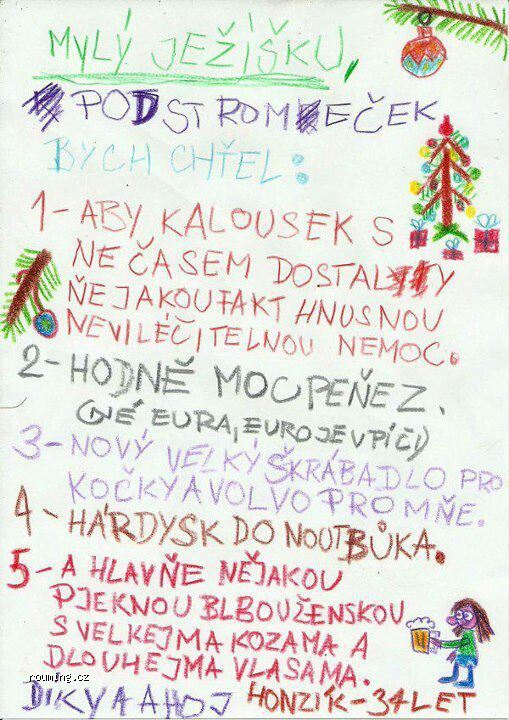 MYLÝ JEŽÍŠKU,
PODSTROMEČEK
BYCH CHŤEL:
1-ABY KALOUSEK S
NEČASEM DOSTALY
ŇEJAKOU FAKT HNUSNOU
NEVILÉČITELNOU NEMOC.
2-HODNĚ MOCPEŇEZ.
(NÉ EURA, EURO JE V PÍČI)
3-NOVÝ VELKÝ ŠKRÁBADLO PRO
KOČKY A VOLVO PRO MŇE.
4-HÁRDYSK DO NOUTBŮKA.
5-A HLAVŇE NĚJAKOU
PJEKNOU BLBOUŽENSKOU
S VELKEJMA KOZAMA A
DLOUHEJMA VLASAMA.
rouming.cz
DIKY A AHOJ HONZÍK-34 LET